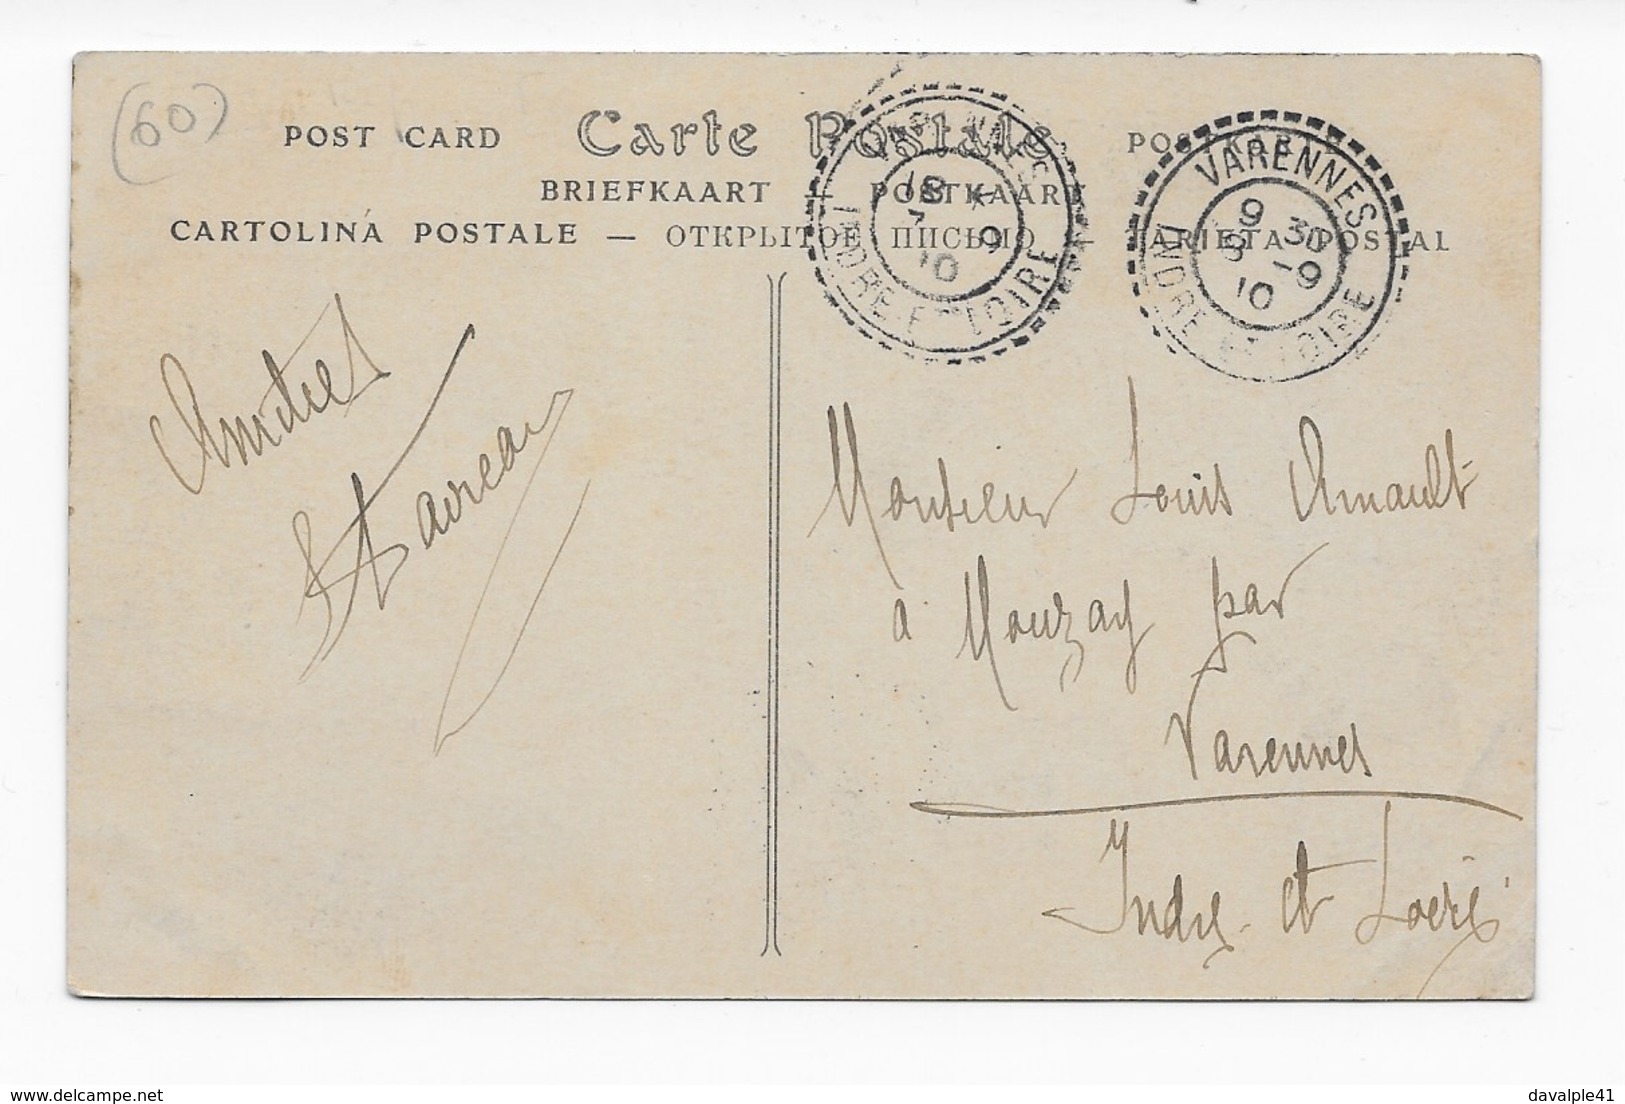 (60)
POST CARD Carte Postale POSTKARTE
BRIEFKAART — POSTKAART
CARTOLINA POSTALE — ОТКРЫТОЕ ПИСЬМО — TARJETA POSTAL
VARENNES
18 *
7 9
10
INDRE-ET-LOIRE
VARENNES
9 30
8 -9
10
INDRE ET LOIRE
Amitiés
Monsieur Louis Arnault
à Mouzay par
Varennes
Indre et Loire
www.delcampe.net
davalple41